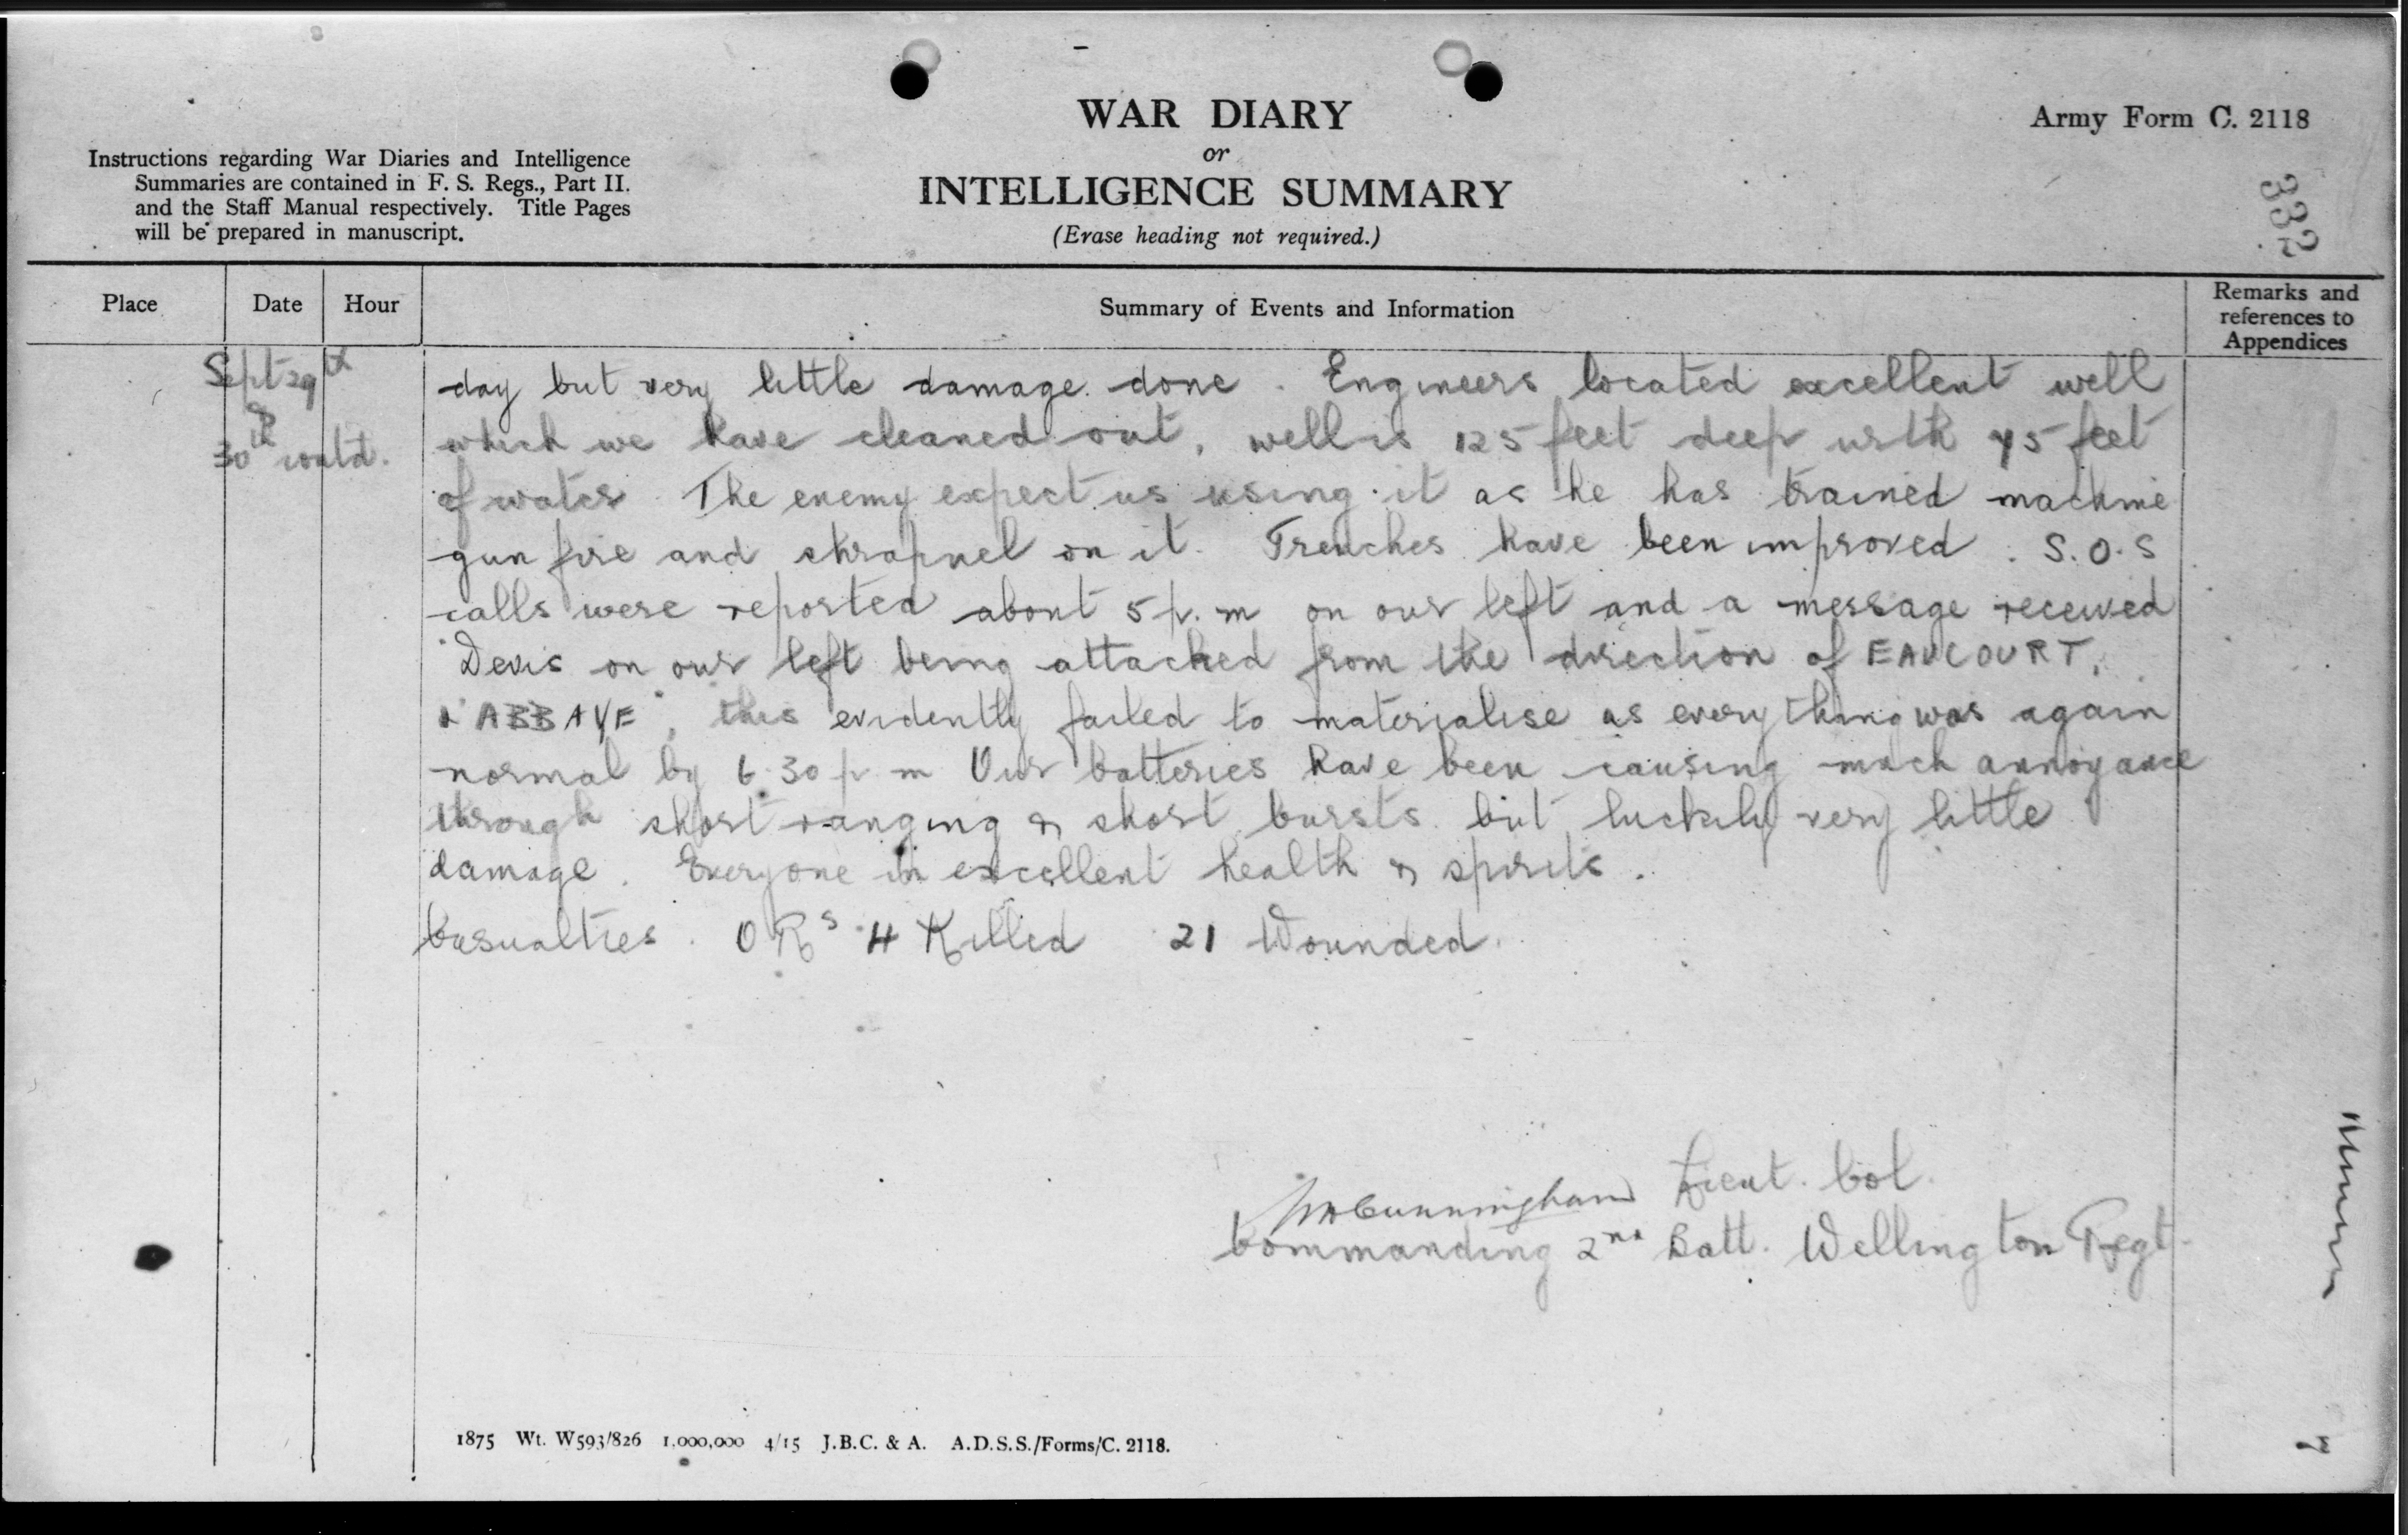 WAR DIARY
or
INTELLIGENCE SUMMARY
(Erase heading not required.)
Army Form C. 2118
332
Instructions regarding War Diaries and Intelligence
Summaries are contained in F. S. Regs., Part II.
and the Staff Manual respectively. Title Pages
will be prepared in manuscript.
Place
Date
Hour
Summary of Events and Information
Remarks and
references to
Appendices
Sept 29th
&
30th contd.
day but very little damage done. Engineers located excellent well
which we have cleaned out, well is 125 feet deep with 45 feet
of water. The enemy expect us using it as he has trained machine
gun fire and shrapnel on it. Trenches have been improved. S.O.S
calls were reported about 5 p.m on our left and a message received
"Devis on our left being attacked from the direction of EAUCOURT,
L'ABBAYE", this evidently failed to materialise as everything was again
normal by 6.30 p m Our batteries have been causing much annoyance
through short ranging & short bursts but luckily very little
damage. Everyone in excellent health & spirits.
Casualties. O Rs 4 Killed 21 Wounded.
Cunningham Lieut. Col.
Commanding 2nd Batt. Wellington Regt.
1875 Wt. W593/826 1,000,000 4/15 J.B.C. & A. A.D.S.S./Forms/C. 2118.